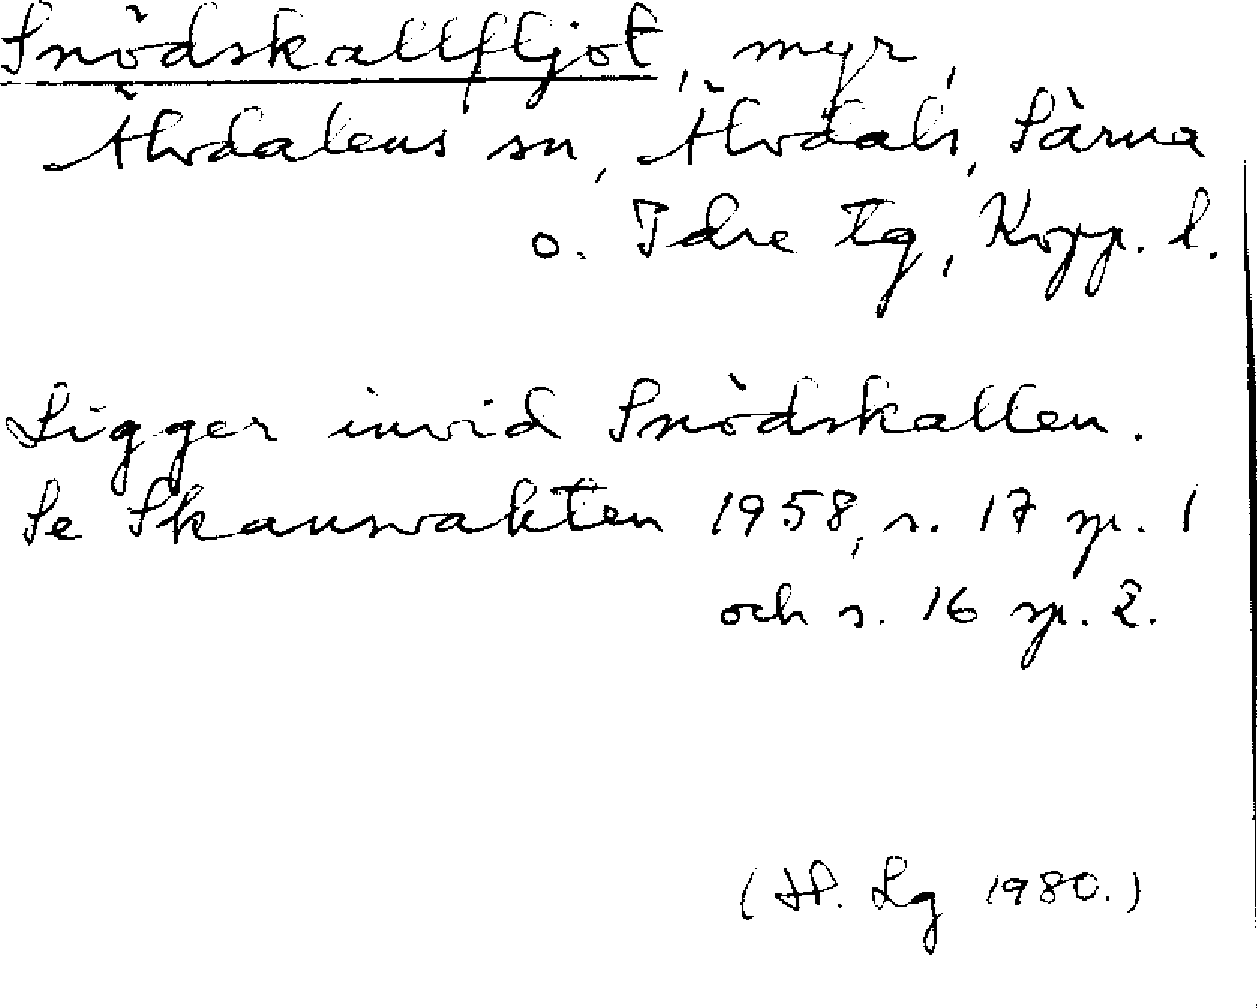 Snödskallfljot, myr,
Älvdalens sn, Älvdals, Särna
o. Idre tg, Kopp. l.
Ligger invid Snödskallen.
Se Skansvakten 1958, s. 17 sp. 1
och s. 16 sp. 2.
(St. Lg 1980.)